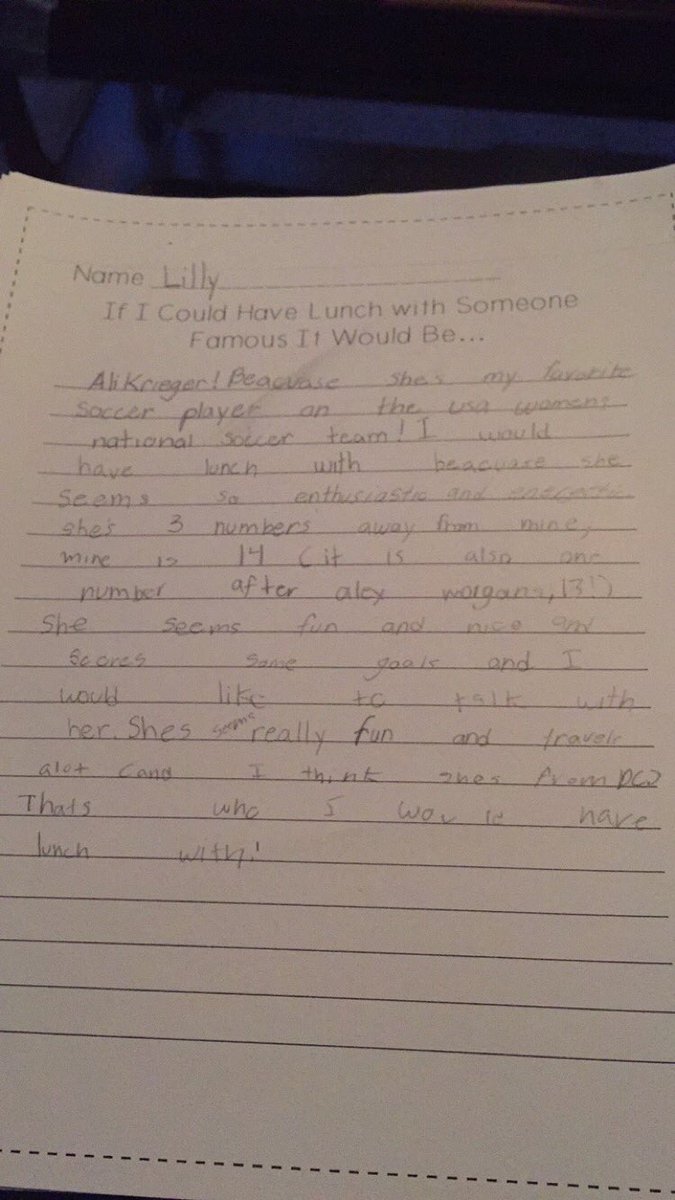 Name Lilly
If I Could Have Lunch with Someone
Famous It Would Be...
Ali Krieger! Beacuase she's my favorite
soccer player on the usa womens
national soccer team! I would
have lunch with beacuase she
seems so enthusiastic and energetic
she's 3 numbers away from mine,
mine is 14 (it is also one
number after alex morgans, 13!)
She seems fun and nice and
scores some goals and I
would like to talk with
her. Shes seems really fun and travels
alot (and I think shes from DC)
Thats who I would have
lunch with!